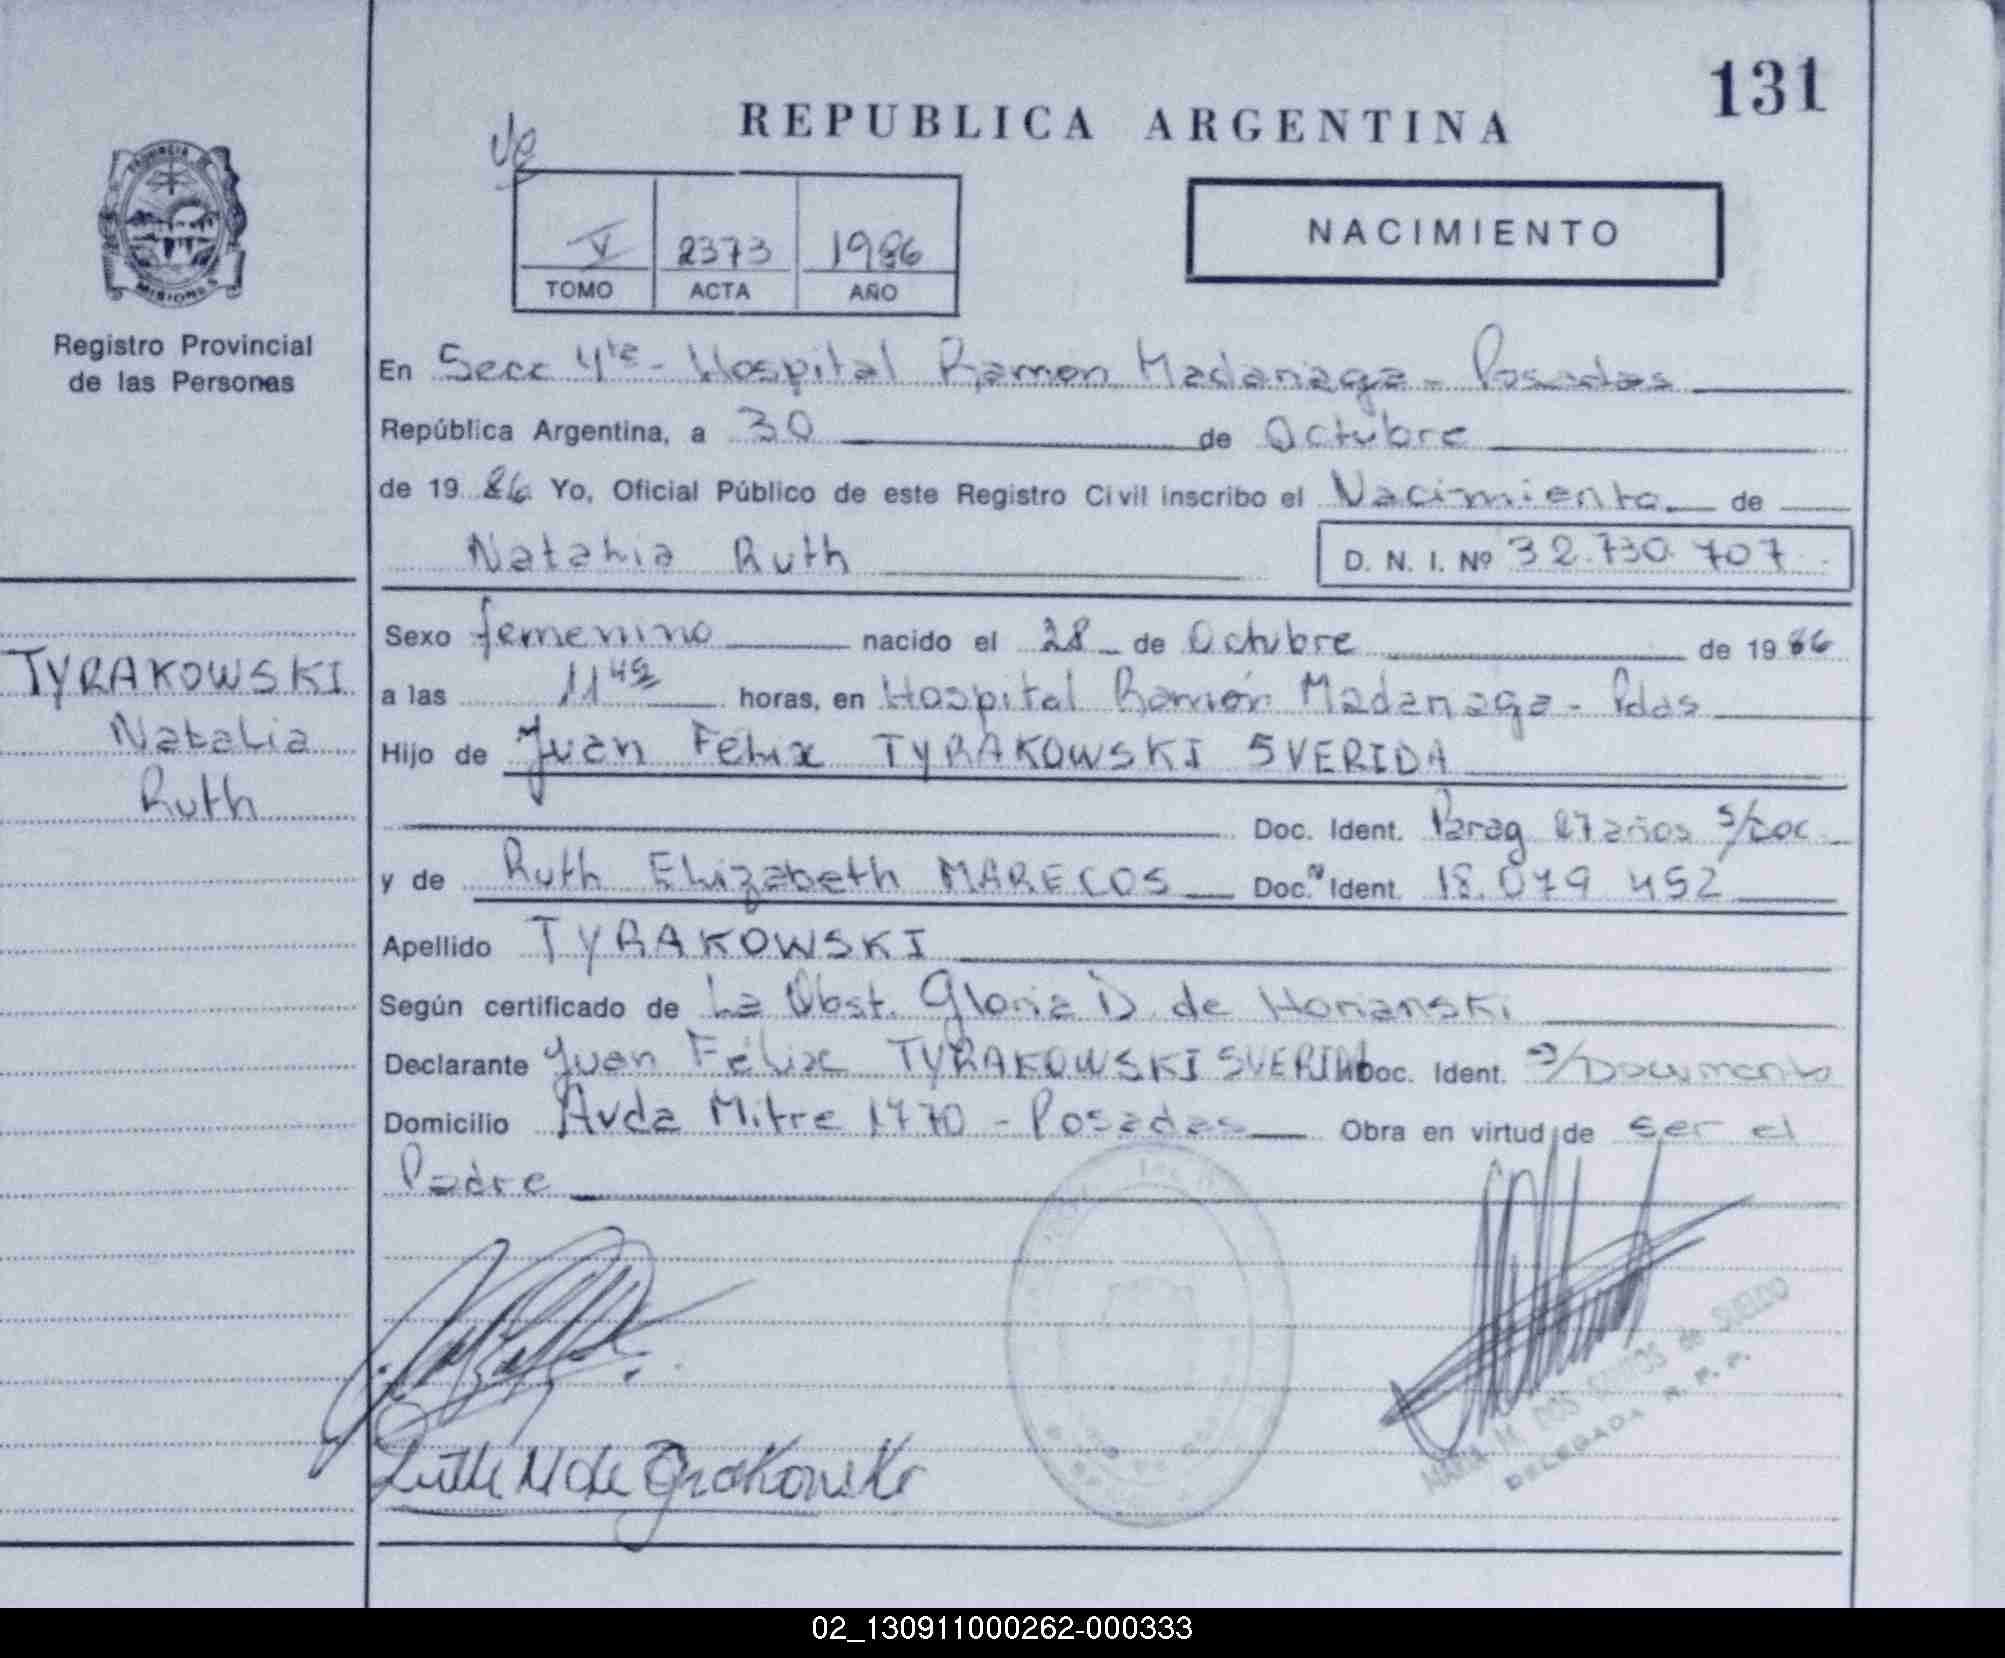 131
REPUBLICA ARGENTINA
PROVINCIA DE
MISIONES
Registro Provincial
de las Personas
V 2373 1986
TOMO ACTA AÑO
NACIMIENTO
En Secc 4ta - Hospital Ramon Madariaga - Posadas
República Argentina, a 30 de Octubre
de 19 86 Yo, Oficial Público de este Registro Civil inscribo el Nacimiento de
Natalia Ruth
D. N. I. Nº 32.730.707
Sexo femenino nacido el 28 de Octubre de 19 86
a las 11 45 horas, en Hospital Ramón Madariaga - Pdas
Hijo de Juan Felix TYRAKOWSKI SVERIDA
Doc. Ident. Parag 27 años s/Doc
y de Ruth Elizabeth MARECOS Doc. Ident. 18.079 452
Apellido TYRAKOWSKI
Según certificado de La Obst. Gloria D. de Horianski
Declarante Juan Félix TYRAKOWSKI SVERIDA Doc. Ident. s/Documento
Domicilio Avda Mitre 1770 - Posadas Obra en virtud de ser el
Padre
TYRAKOWSKI
Natalia
Ruth
Ruth M de Tyrakowski
MARIA M. DOS SANTOS de SUELDO
DELEGADA R. P. P.
02_130911000262-000333